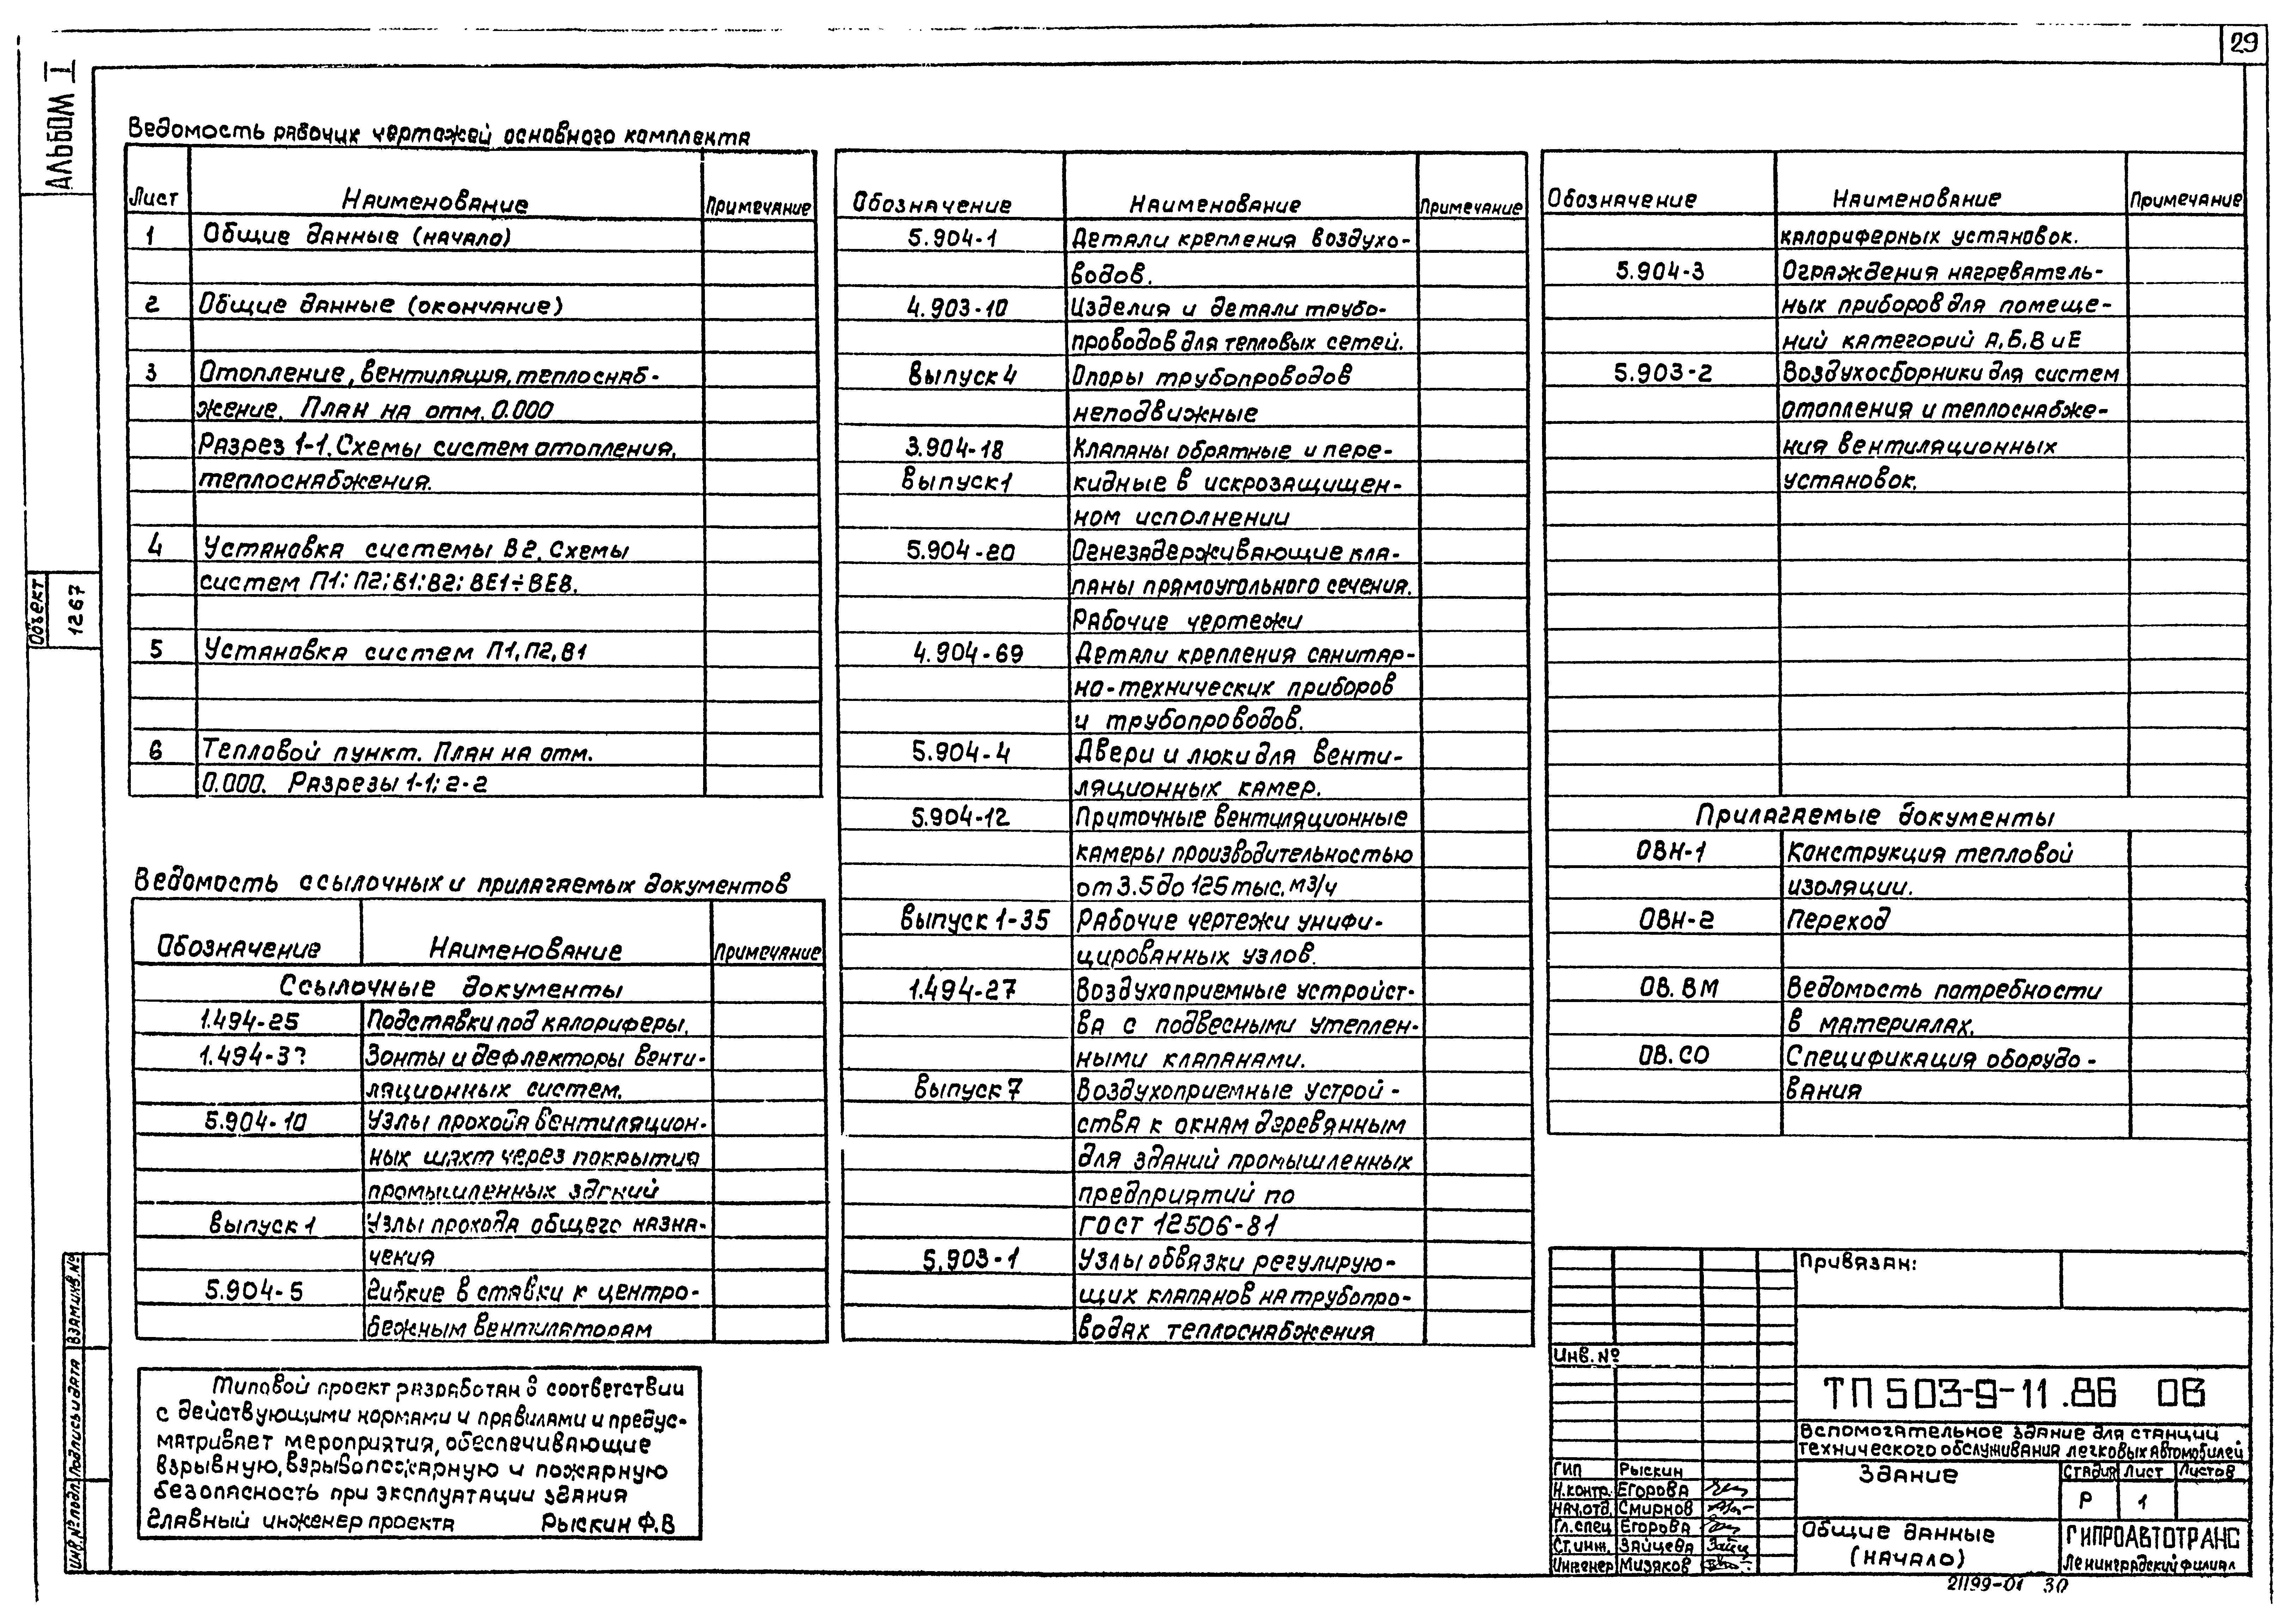 29
АЛЬБОМ I
Объект
1267
Ведомость рабочих чертажей основного комплекта
Лист Наименование Примечание
1 Общие данные (начало)
2 Общие данные (окончание)
3 Отопление, вентиляция, теплоснаб-
жение. План на отм. 0.000
Разрез 1-1. Схемы систем отопления,
теплоснабжения.
4 Установка системы В2. Схемы
систем П1; П2; В1; В2; ВЕ1÷ВЕ8.
5 Установка систем П1, П2, В1
6 Тепловой пункт. План на отм.
0.000. Разрезы 1-1; 2-2
Ведомость ссылочных и прилагаемых документов
Обозначение Наименование Примечание
Ссылочные документы
1.494-25 Подставки под калориферы.
Зонты и дефлекторы венти-
ляционных систем.
5.904-10 Узлы прохода вентиляцион-
ных шахт через покрытия
промышленных зданий
Выпуск 1 Узлы прохода общего назна-
чения
5.904-5 Гибкие вставки к центро-
бежным вентиляторам
Типовой проект разработан в соответствии
с действующими нормами и правилами и предус-
матривает мероприятия, обеспечивающие
взрывную, взрывопожарную и пожарную
безопасность при эксплуатации здания
Главный инженер проекта Рыскин Ф.В
Обозначение Наименование Примечание
5.904-1 Детали крепления воздухо-
водов.
4.903-10 Изделия и детали трубо-
проводов для тепловых сетей.
Выпуск 4 Опоры трубопроводов
неподвижные
3.904-18 Клапаны обратные и пере-
Выпуск 1 кидные в искрозащищен-
ном исполнении
5.904-20 Огнезадерживающие кла-
паны прямоугольного сечения.
Рабочие чертежи
4.904-69 Детали крепления санитар-
но-технических приборов
и трубопроводов.
5.904-4 Двери и люки для венти-
ляционных камер.
5.904-12 Приточные вентиляционные
камеры производительностью
от 3.5 до 125 тыс. м3/ч
Выпуск 1-35 Рабочие чертежи унифи-
цированных узлов.
1.494-27 Воздухоприемные устройст-
ва с подвесными утеплен-
ными клапанами.
Выпуск 7 Воздухоприемные устрой-
ства к окнам деревянным
для зданий промышленных
предприятий по
ГОСТ 12506-81
5.903-1 Узлы обвязки регулирую-
щих клапанов на трубопро-
водах теплоснабжения
Обозначение Наименование Примечание
калориферных установок.
5.904-3 Ограждения нагреватель-
ных приборов для помеще-
ний категорий А, Б, В и Е
5.903-2 Воздухосборники для систем
отопления и теплоснабже-
ния вентиляционных
установок.
Прилагаемые документы
ОВН-1 Конструкция тепловой
изоляции.
ОВН-2 Переход
ОВ. ВМ Ведомость потребности
в материалах.
ОВ. СО Спецификация оборудо-
вания
Привязан:
Инв. №
ТП 503-9-11.86 ОВ
Вспомогательное здание для станции
технического обслуживания легковых автомобилей
ГИП Рыскин
Н.контр. Егорова
Нач.отд. Смирнов
Гл.спец Егорова
Ст.инж. Зайцева
Инженер Мизяков
Здание
Стадия Лист Листов
Р 1
Общие данные
(начало)
ГИПРОАВТОТРАНС
Ленинградский филиал
21199-01 30
Инв. № подл. Подпись и дата Взам.инв.№